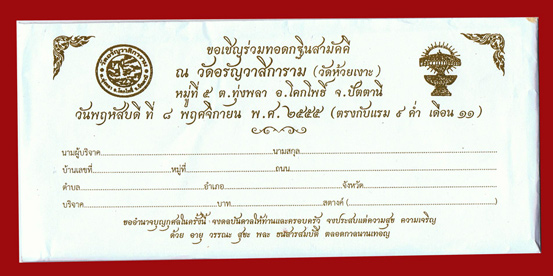 ขอเชิญร่วมทอดกฐินสามัคคี
ณ วัดอรัญวาสิการาม (วัดห้วยเงาะ)
หมู่ที่ ๕ ต.ทุ่งพลา อ.โคกโพธิ์ จ.ปัตตานี
วันพฤหัสบดี ที่ ๘ พฤศจิกายน พ.ศ.๒๕๕๕ (ตรงกับแรม ๙ ค่ำ เดือน ๑๑)
นามผู้บริจาค นามสกุล
บ้านเลขที่ หมู่ที่ ถนน
ตำบล อำเภอ จังหวัด
บริจาค บาท สตางค์ ( )
ขออำนาจบุญกุศลในครั้งนี้ จงดลบันดาลให้ท่านและครอบครัว จงประสบแต่ความสุข ความเจริญ
ด้วย อายุ วรรณะ สุขะ พละ ธนสารสมบัติ ตลอดกาลนานเทอญ